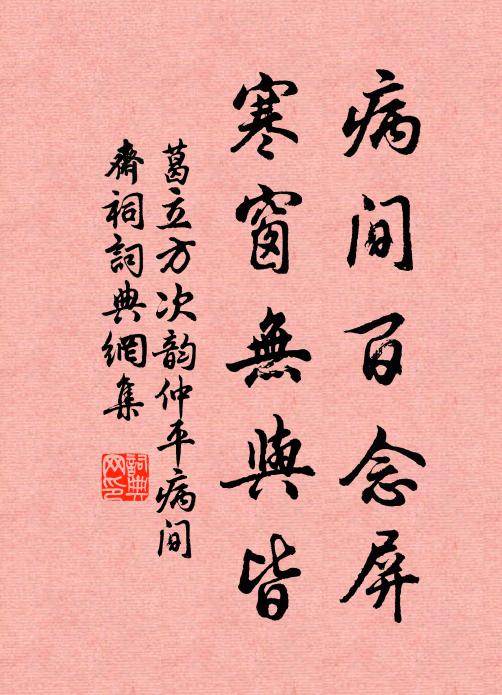 病间百念屏
寒窗無與皆
葛立方次韵仲平病间
齋祠詞典網集
詞典网印